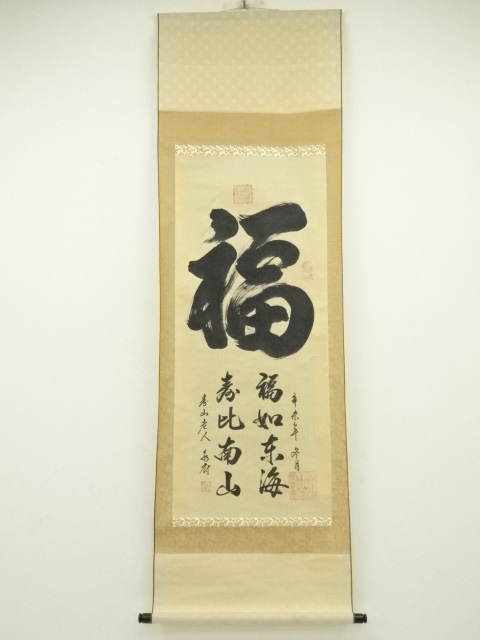 福
辛未年 冬月
福如东海
寿比南山
寿山老人